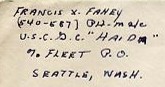 FRANCIS X. FAHEY
(540-587) PH-M2/c
U.S.C.G.C. "HAIDA"
% FLEET P.O.
SEATTLE, WASH.